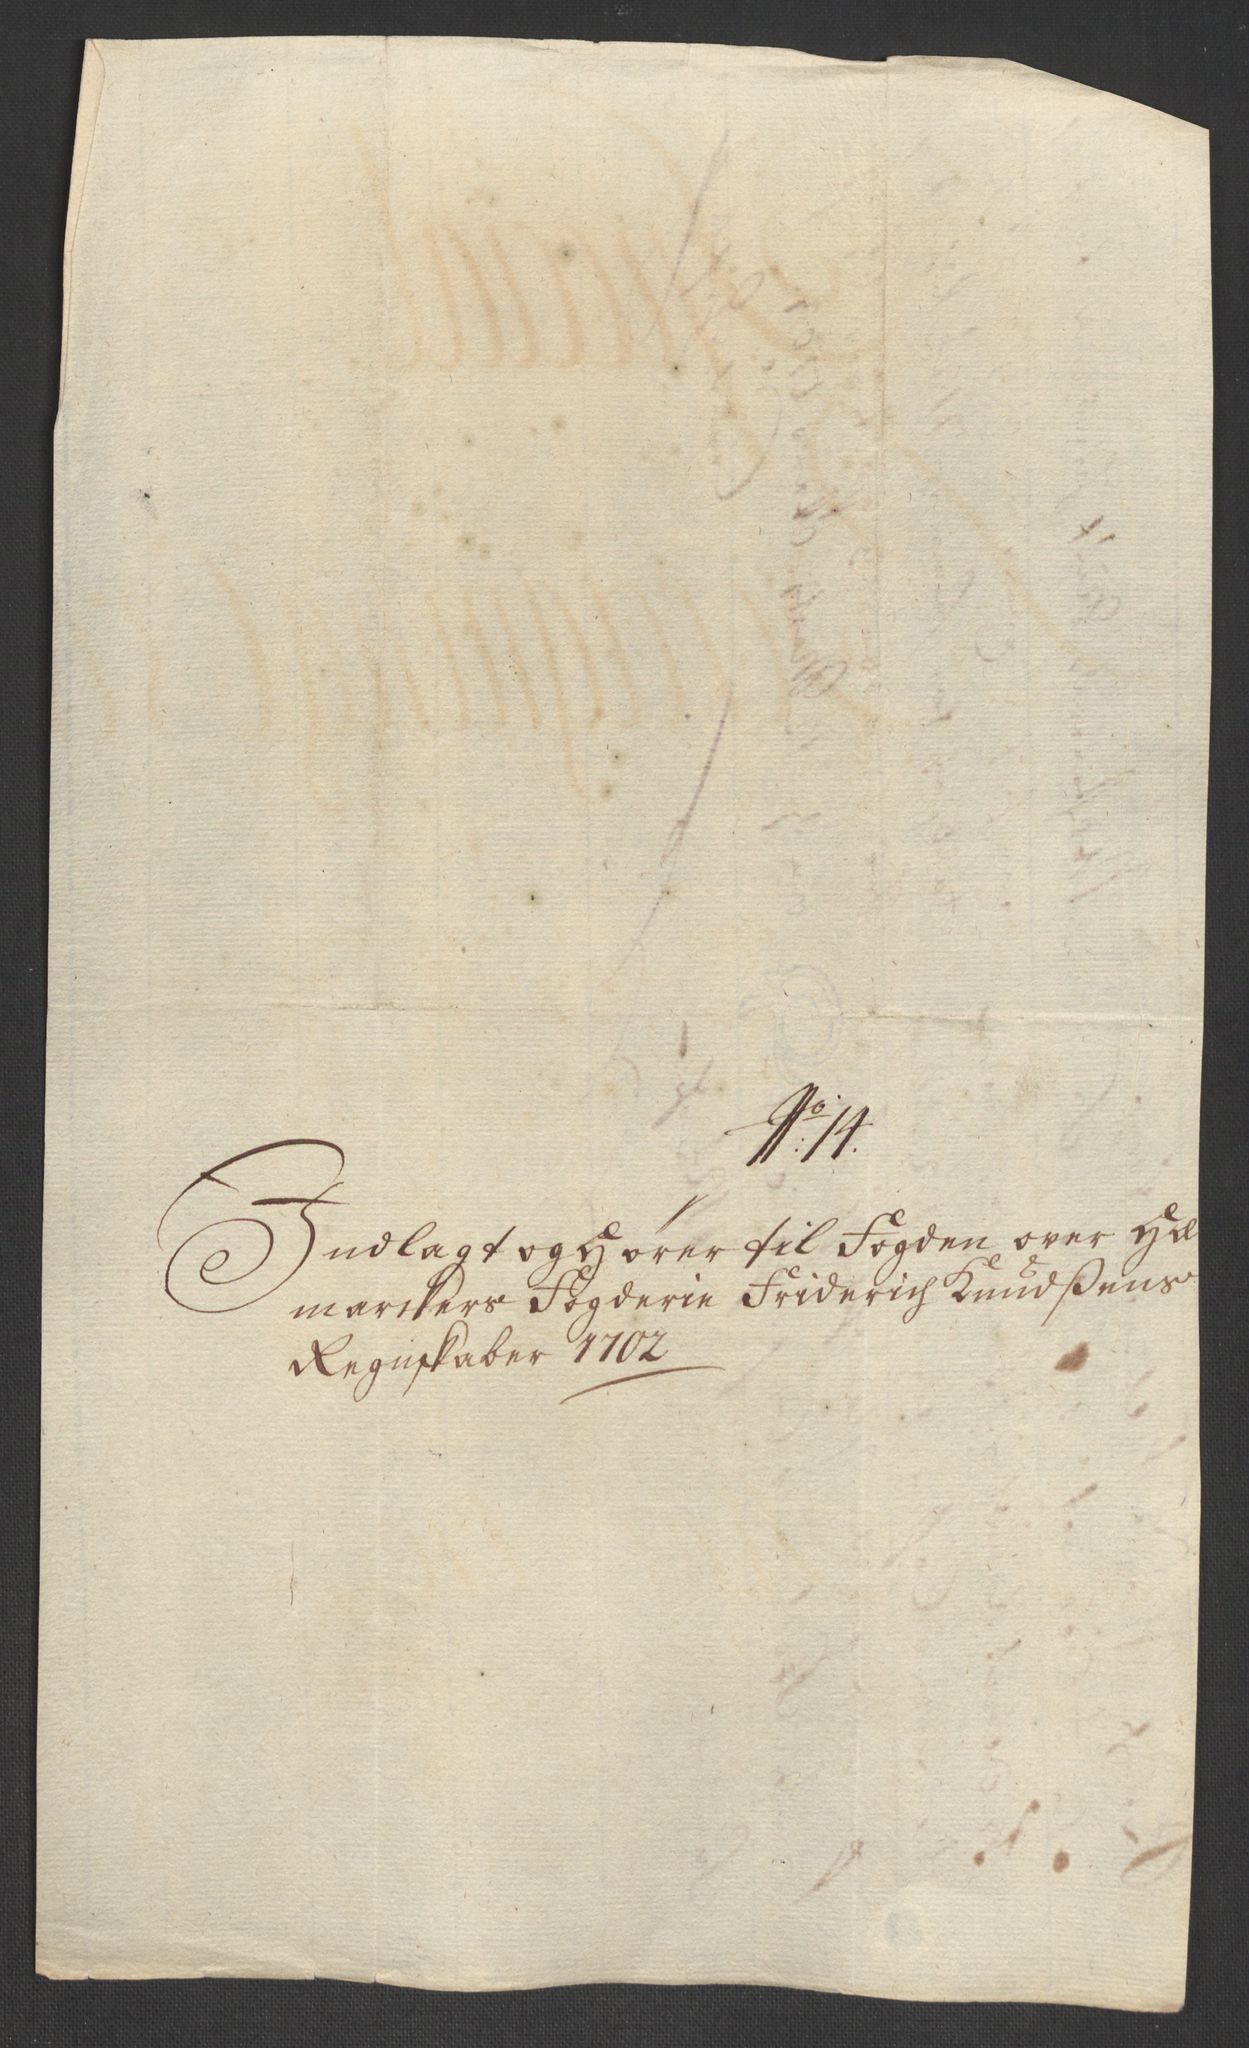 No: 14.
Indlagt og Hører til Fogden over Hæ
marckers Fogderie Friderich Knudßens
Regnskaber 1702